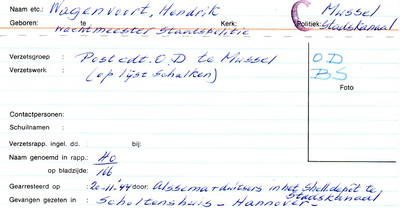 Naam etc.: Wagenvoort, Hendrik Mussel
Geboren: te Kerk: Politiek: Stadskanaal
Wachtmeester Staatspolitie
Verzetsgroep : Post cdt. O.D te Mussel O.D
Verzetswerk : (op lijst Schalken) BS
Foto
Contactpersonen:
Schuilnamen :
Verzetsrapp. ingel. dd. : bij:
Naam genoemd in rapp.: HO
op bladzijde: 166
Gearresteerd op : 20-11-'44 door: Alssema + dwitsers in het Shelldepôt te
Stadskanaal
Gevangen gezeten in : Scholtenshuis - Hannover -